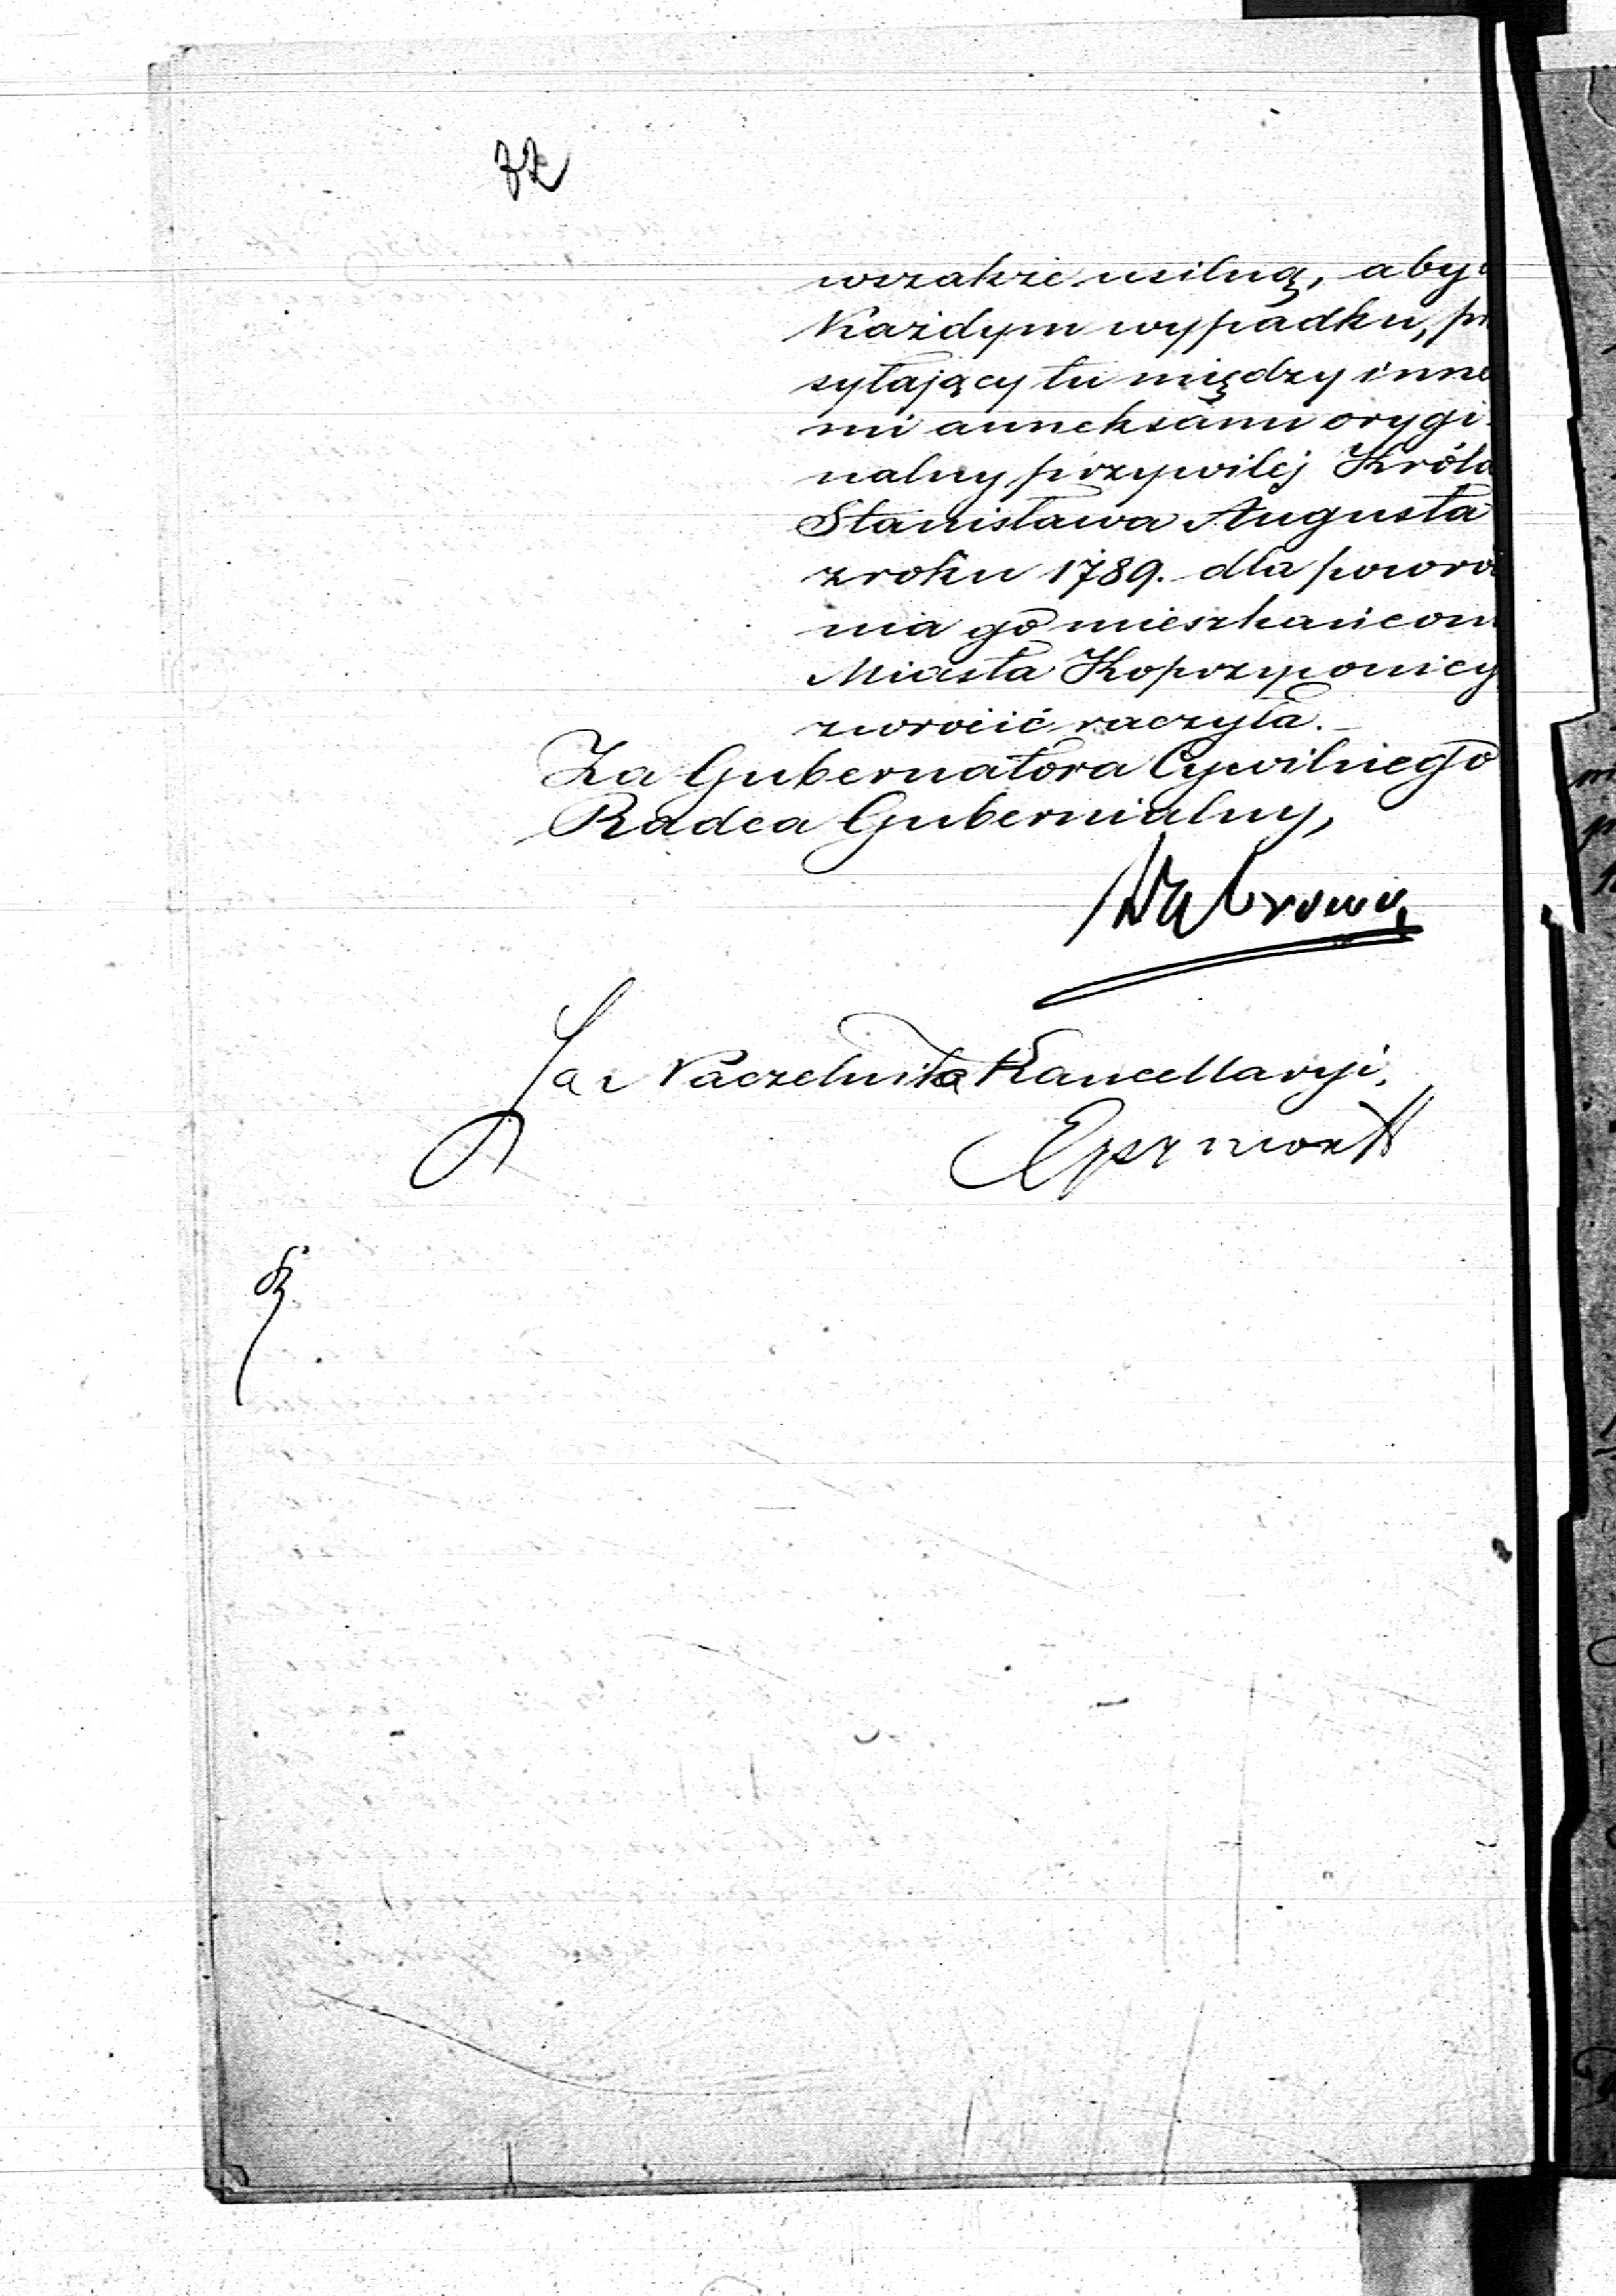 32
wszakże usilną, aby
Każdym wypadku, prz
syłający tu między inne
mi anneksami orygi-
nalny przywilej Króla
Stanisława Augusta
z roku 1789. dla powró
nia go mieszkańcom
Miasta Koprzywnicy
zwrócić raczyła.
Za Gubernatora Cywilnego
Radca Gubernialny,
Za Naczelnika Kancellaryi,